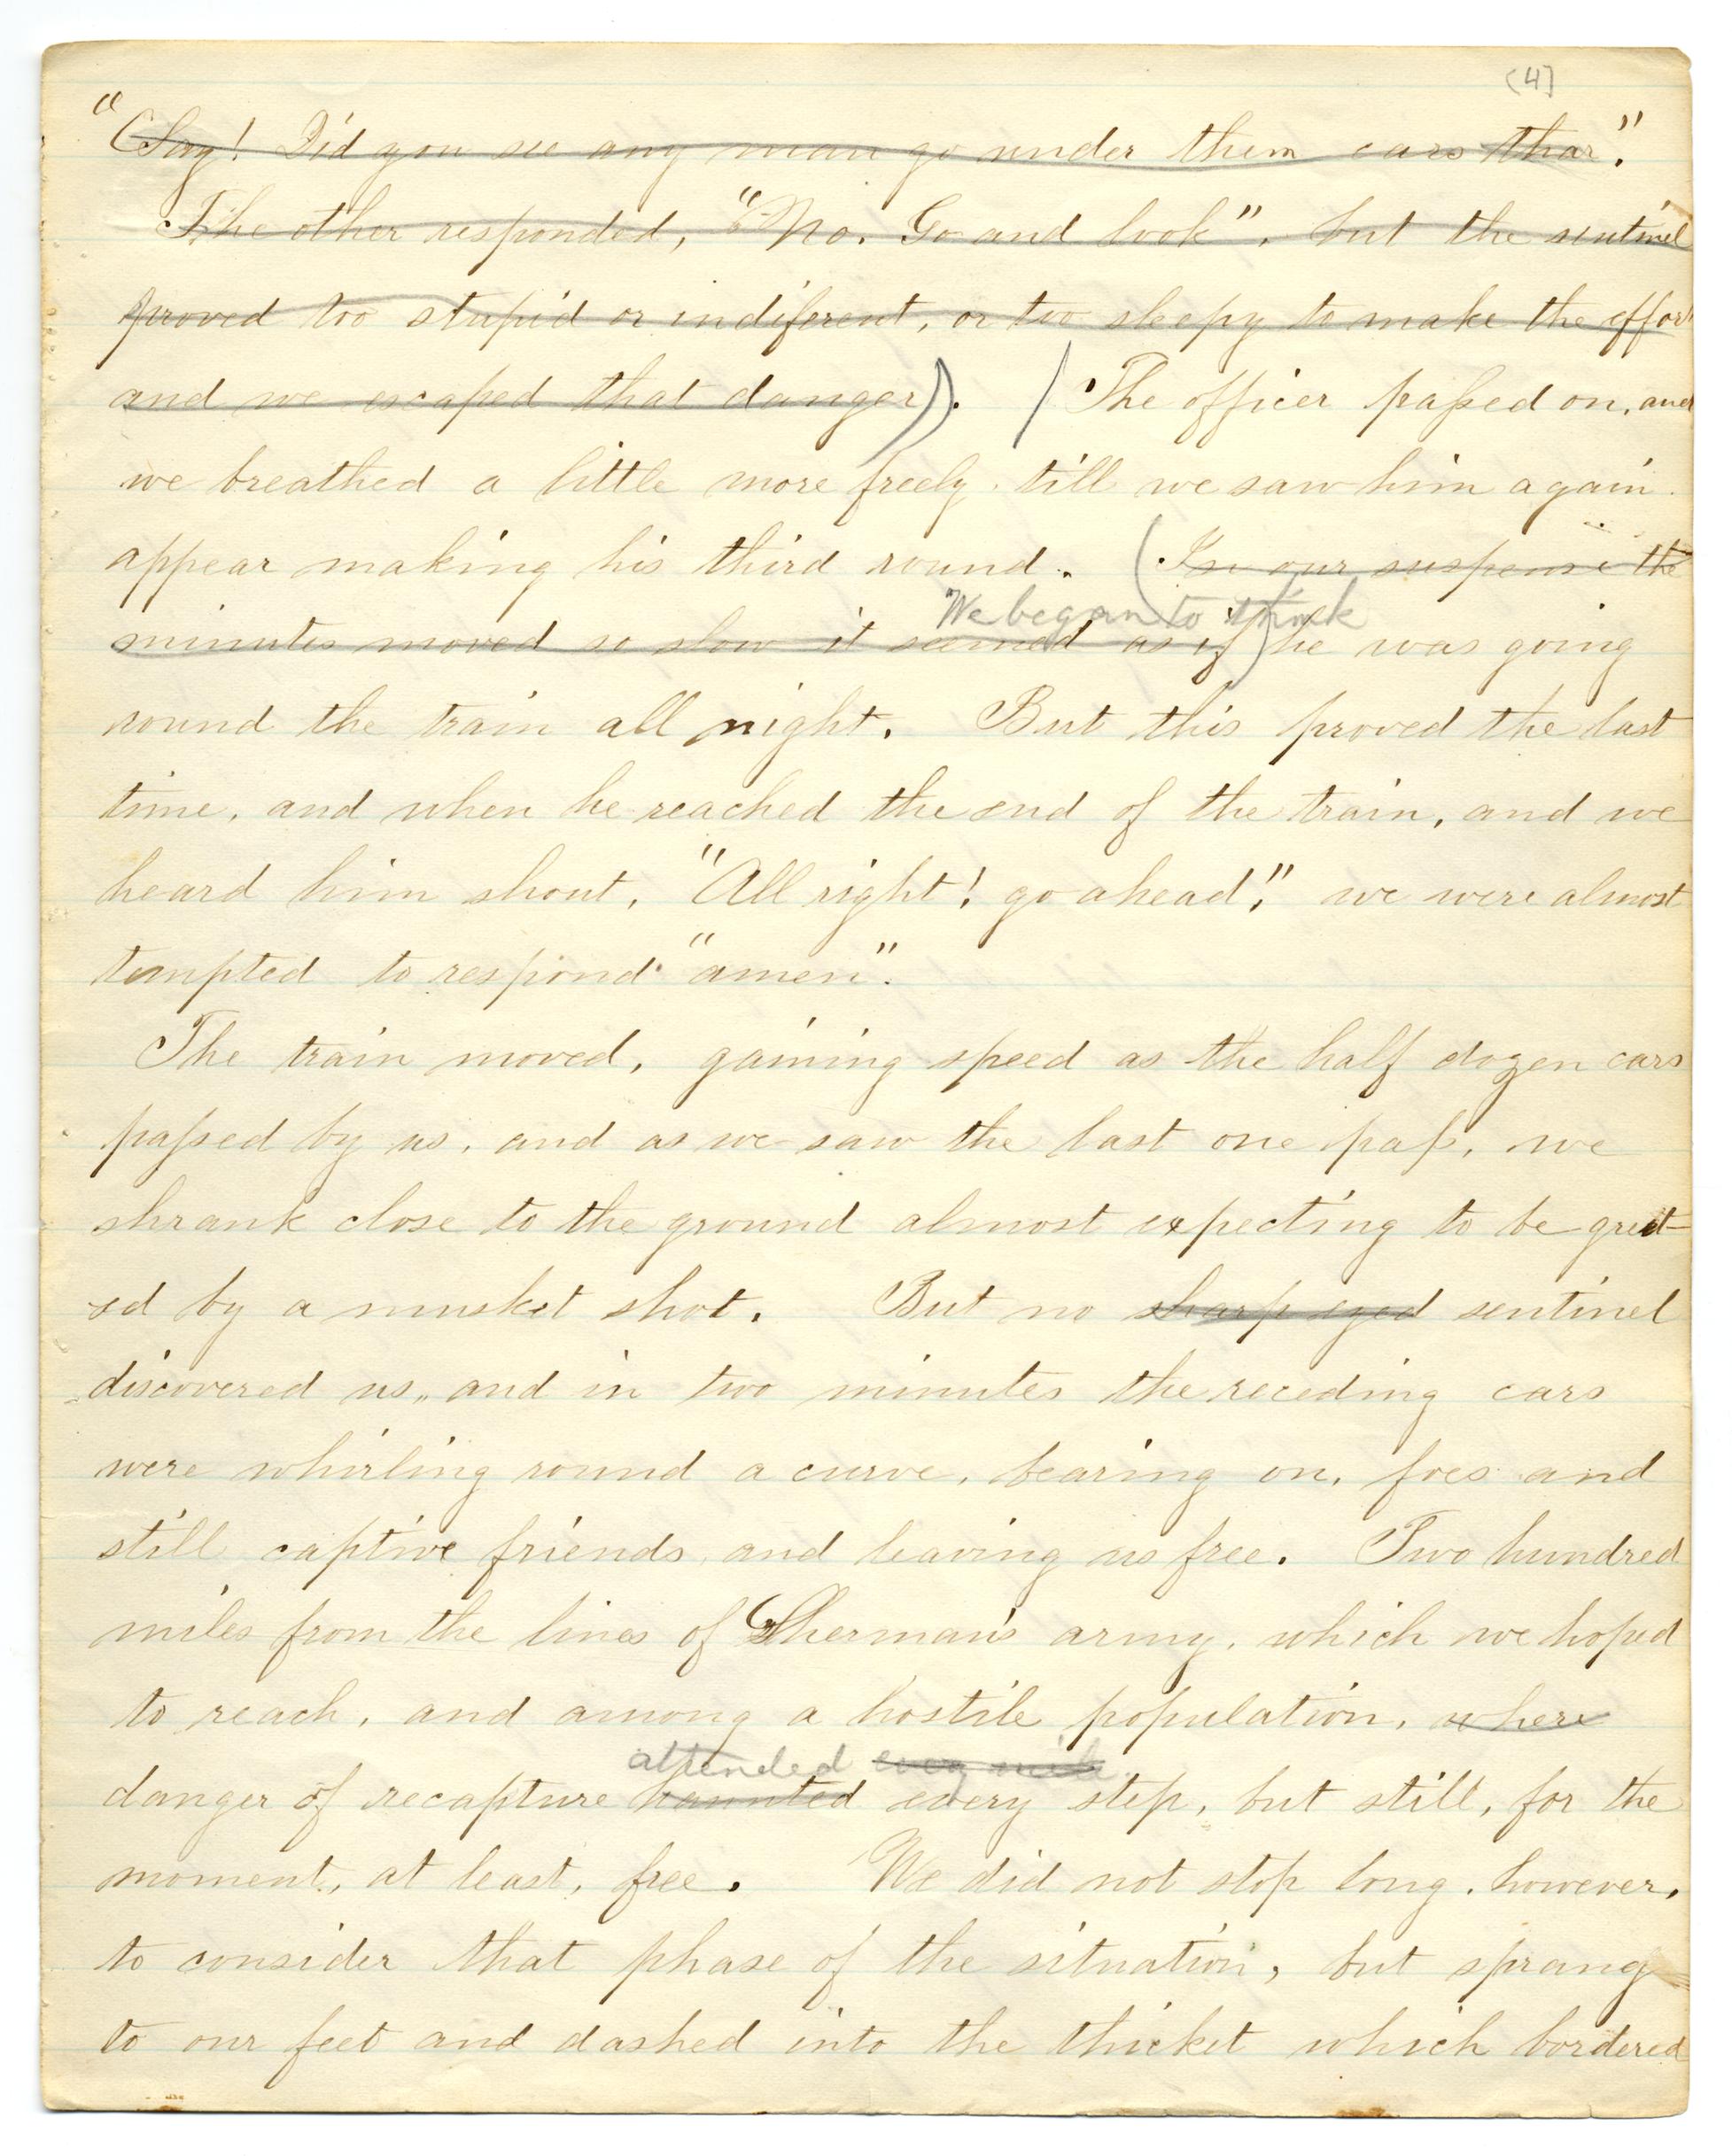 (4)
"(Say! Did you see any man go under them cars thar".
The other responded, "No. Go and look", but the sentinel
proved too stupid or indiferent, or too sleepy to make the effort
and we escaped that danger). ( The officer passed on, and
we breathed a little more freely till we saw him again
appear making his third round. (In our suspense the
We began to think
minutes moved so slow it seemed as if) he was going
round the train all night. But this proved the last
time, and when he reached the end of the train, and we
heard him shout, "All right! go ahead," we were almost
tempted to respond "amen".
The train moved, gaining speed as the half dozen cars
passed by us, and as we saw the last one pass, we
shrank close to the ground almost expecting to be greet-
ed by a musket shot. But no sharp eyed sentinel
discovered us, and in two minutes the receding cars
were whirling round a curve, bearing on, foes and
still captive friends, and leaving us free. Two hundred
miles from the lines of Sherman's army, which we hoped
to reach, and among a hostile population, where
attended every mile
danger of recapture haunted every step, but still, for the
moment, at least, free. We did not stop long, however,
to consider that phase of the situation, but sprang
to our feet and dashed into the thicket which bordered